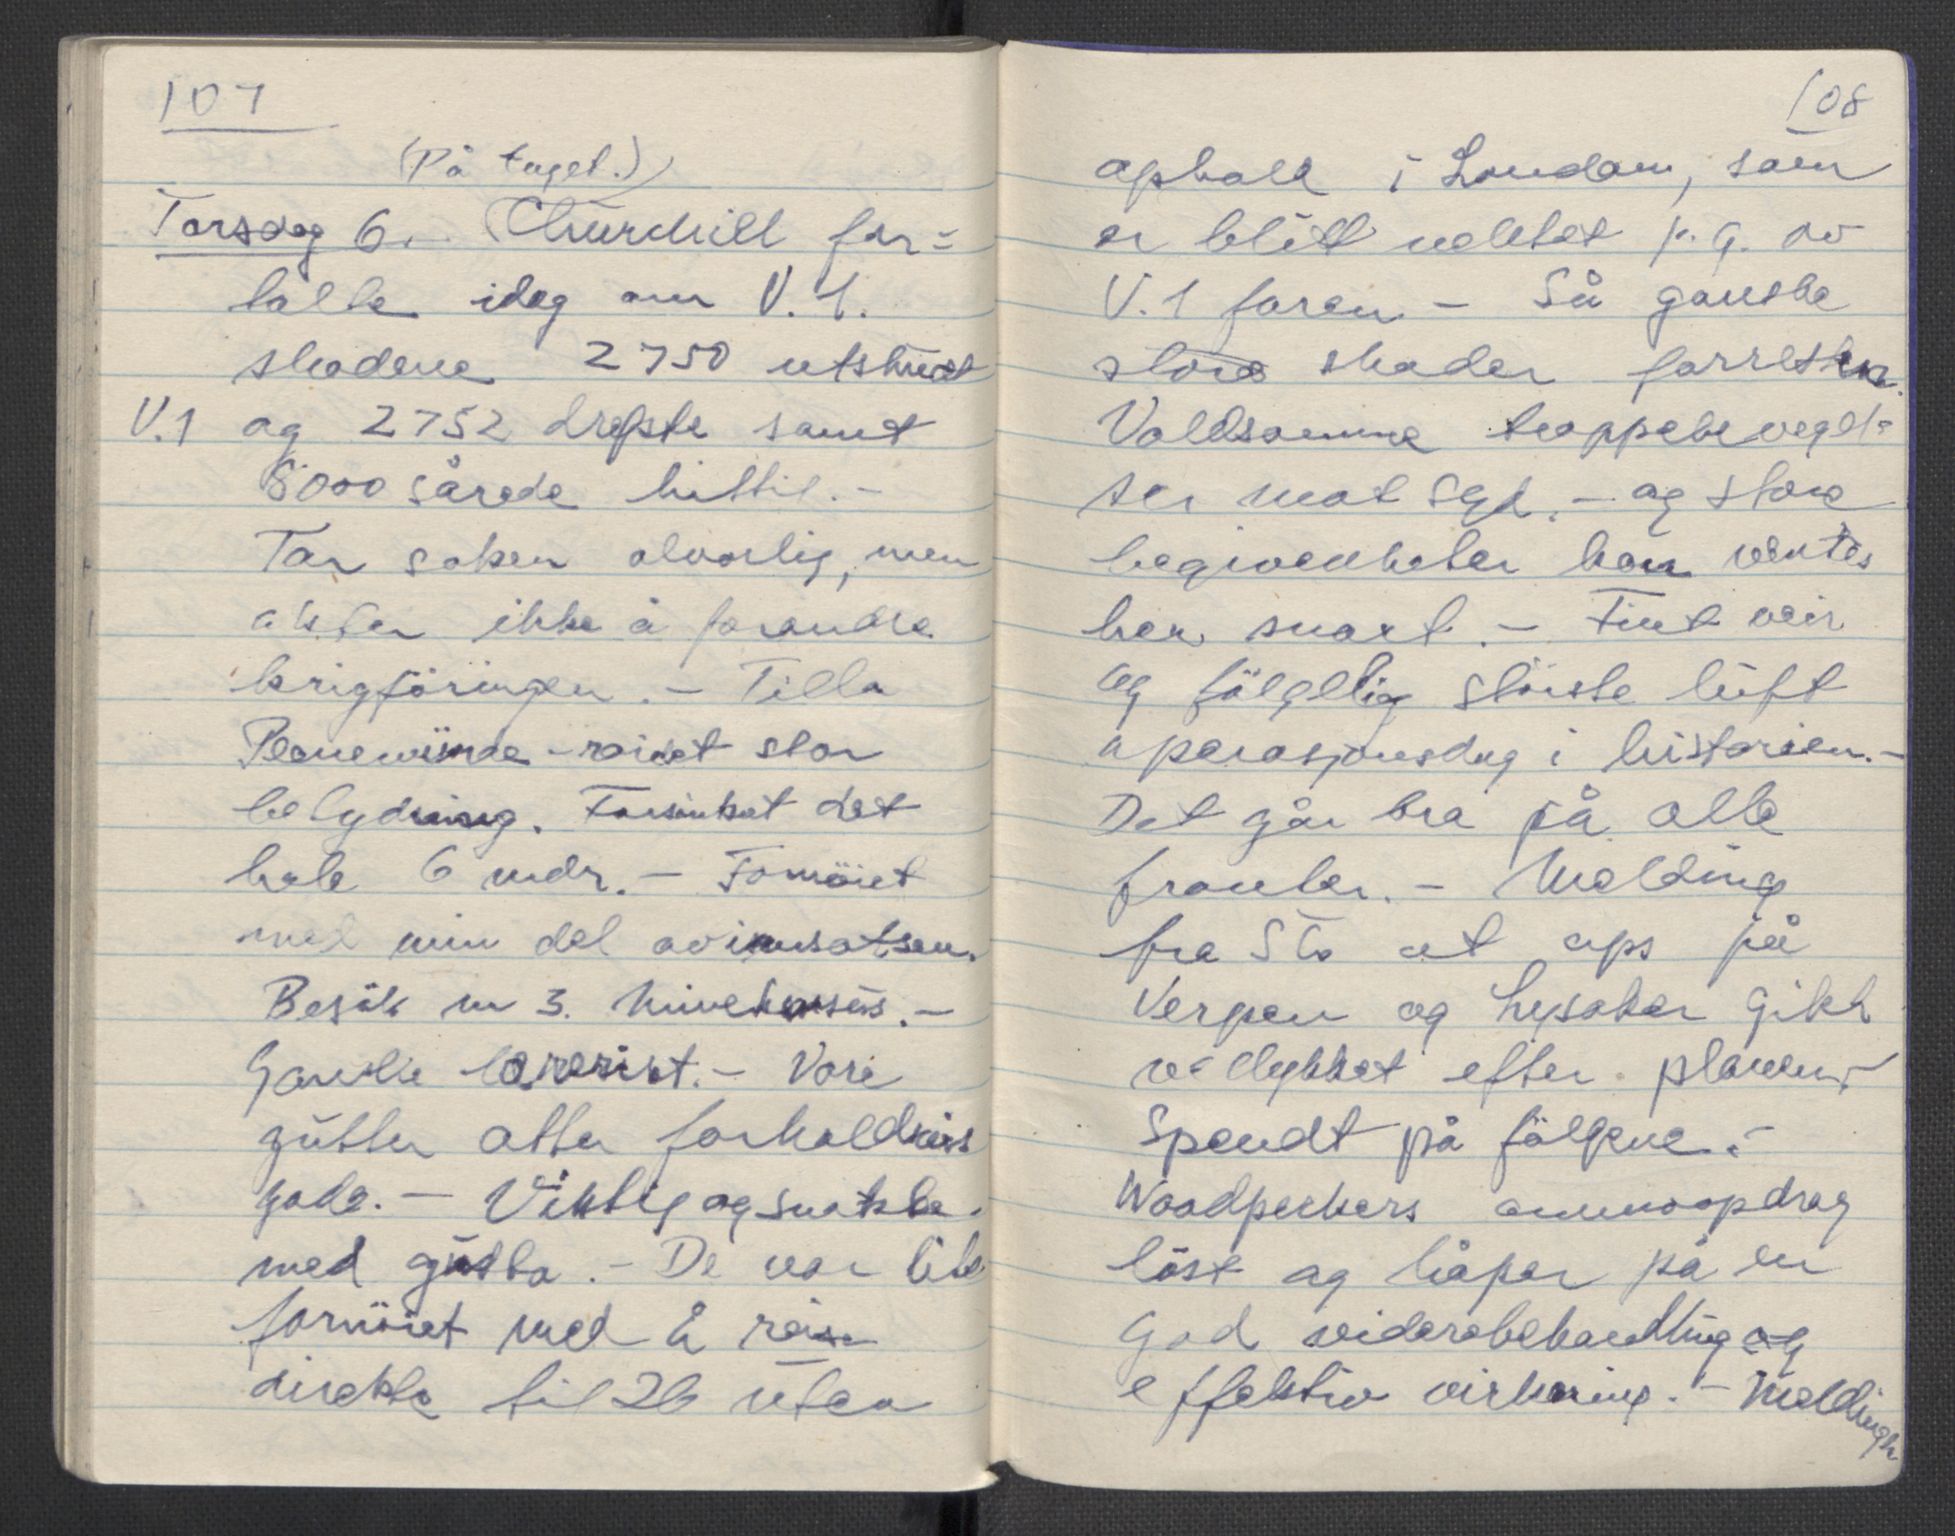 107
(På toget.)
Torsdag 6. Churchill for-
talte idag om V.1.
skadene 2750 utskudt
V.1 og 2752 drepte samt
8000 sårede hittil.-
Tar saken alvorlig, men
akter ikke å forandre
krigföringen. - Tilla
Penewünde-raidet stor
betydning. Forsinket det
hele 6 mdr. - Fornöiet
med min del av innsatsen.
Besök m 3.
Ganske .- Våre
gutter atter forholdsvis
gode. - Viktig og snakke
med gutta. - De var lite
fornöiet med å reise
direkte til 26 uten
108
ophold i London, som
er blitt nektet p.g. av
V.1 faren. - Så ganske
store skader forresten.
Voldsomme troppebevegel-
ser mot Syd. - og store
begivenheter kan ventes
her snart. - Fint veir
og fölgelig störste luft
operasjonsdag i historien.-
Det går bra på alle
fronter. - Melding
fra Sto at ops på
Verpen og Lysaker gikk
vellykket efter planen.-
Spendt på fölgene.-
Woodpeckers ammoopdrag
löst og håper på en
god viderebehandling og
effektiv virkning. - Melding